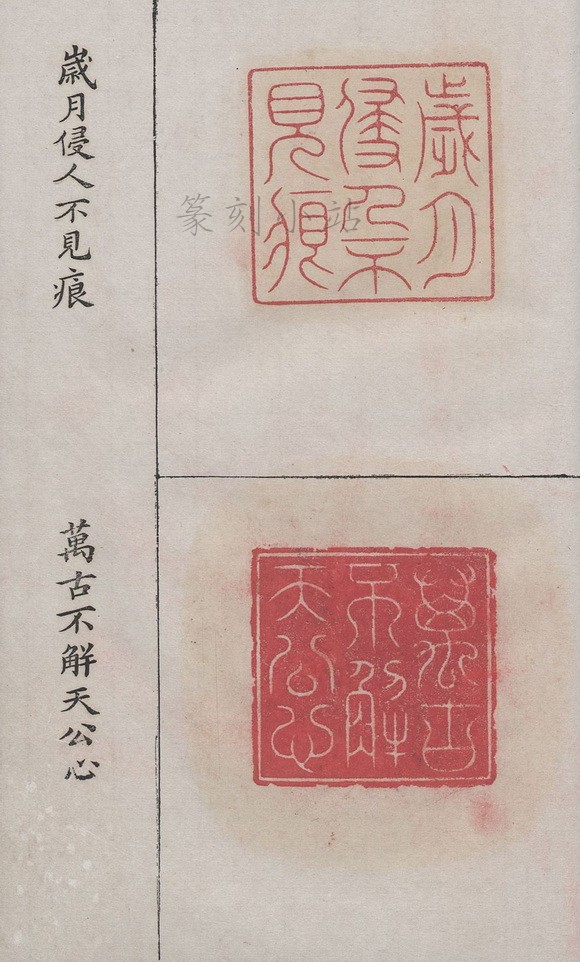 歲月侵人不見痕
歲月
侵人不
見痕
篆刻小站
萬古不解天公心
萬古
不解
天公心